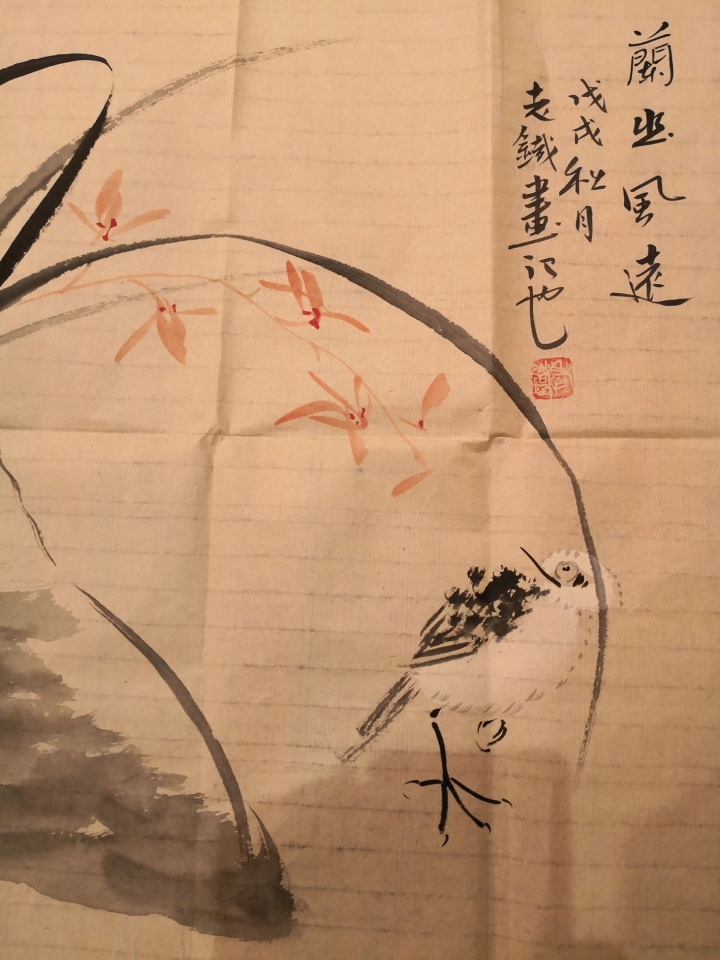 蘭幽風遠
戊戌秋月
老鐵畫記也